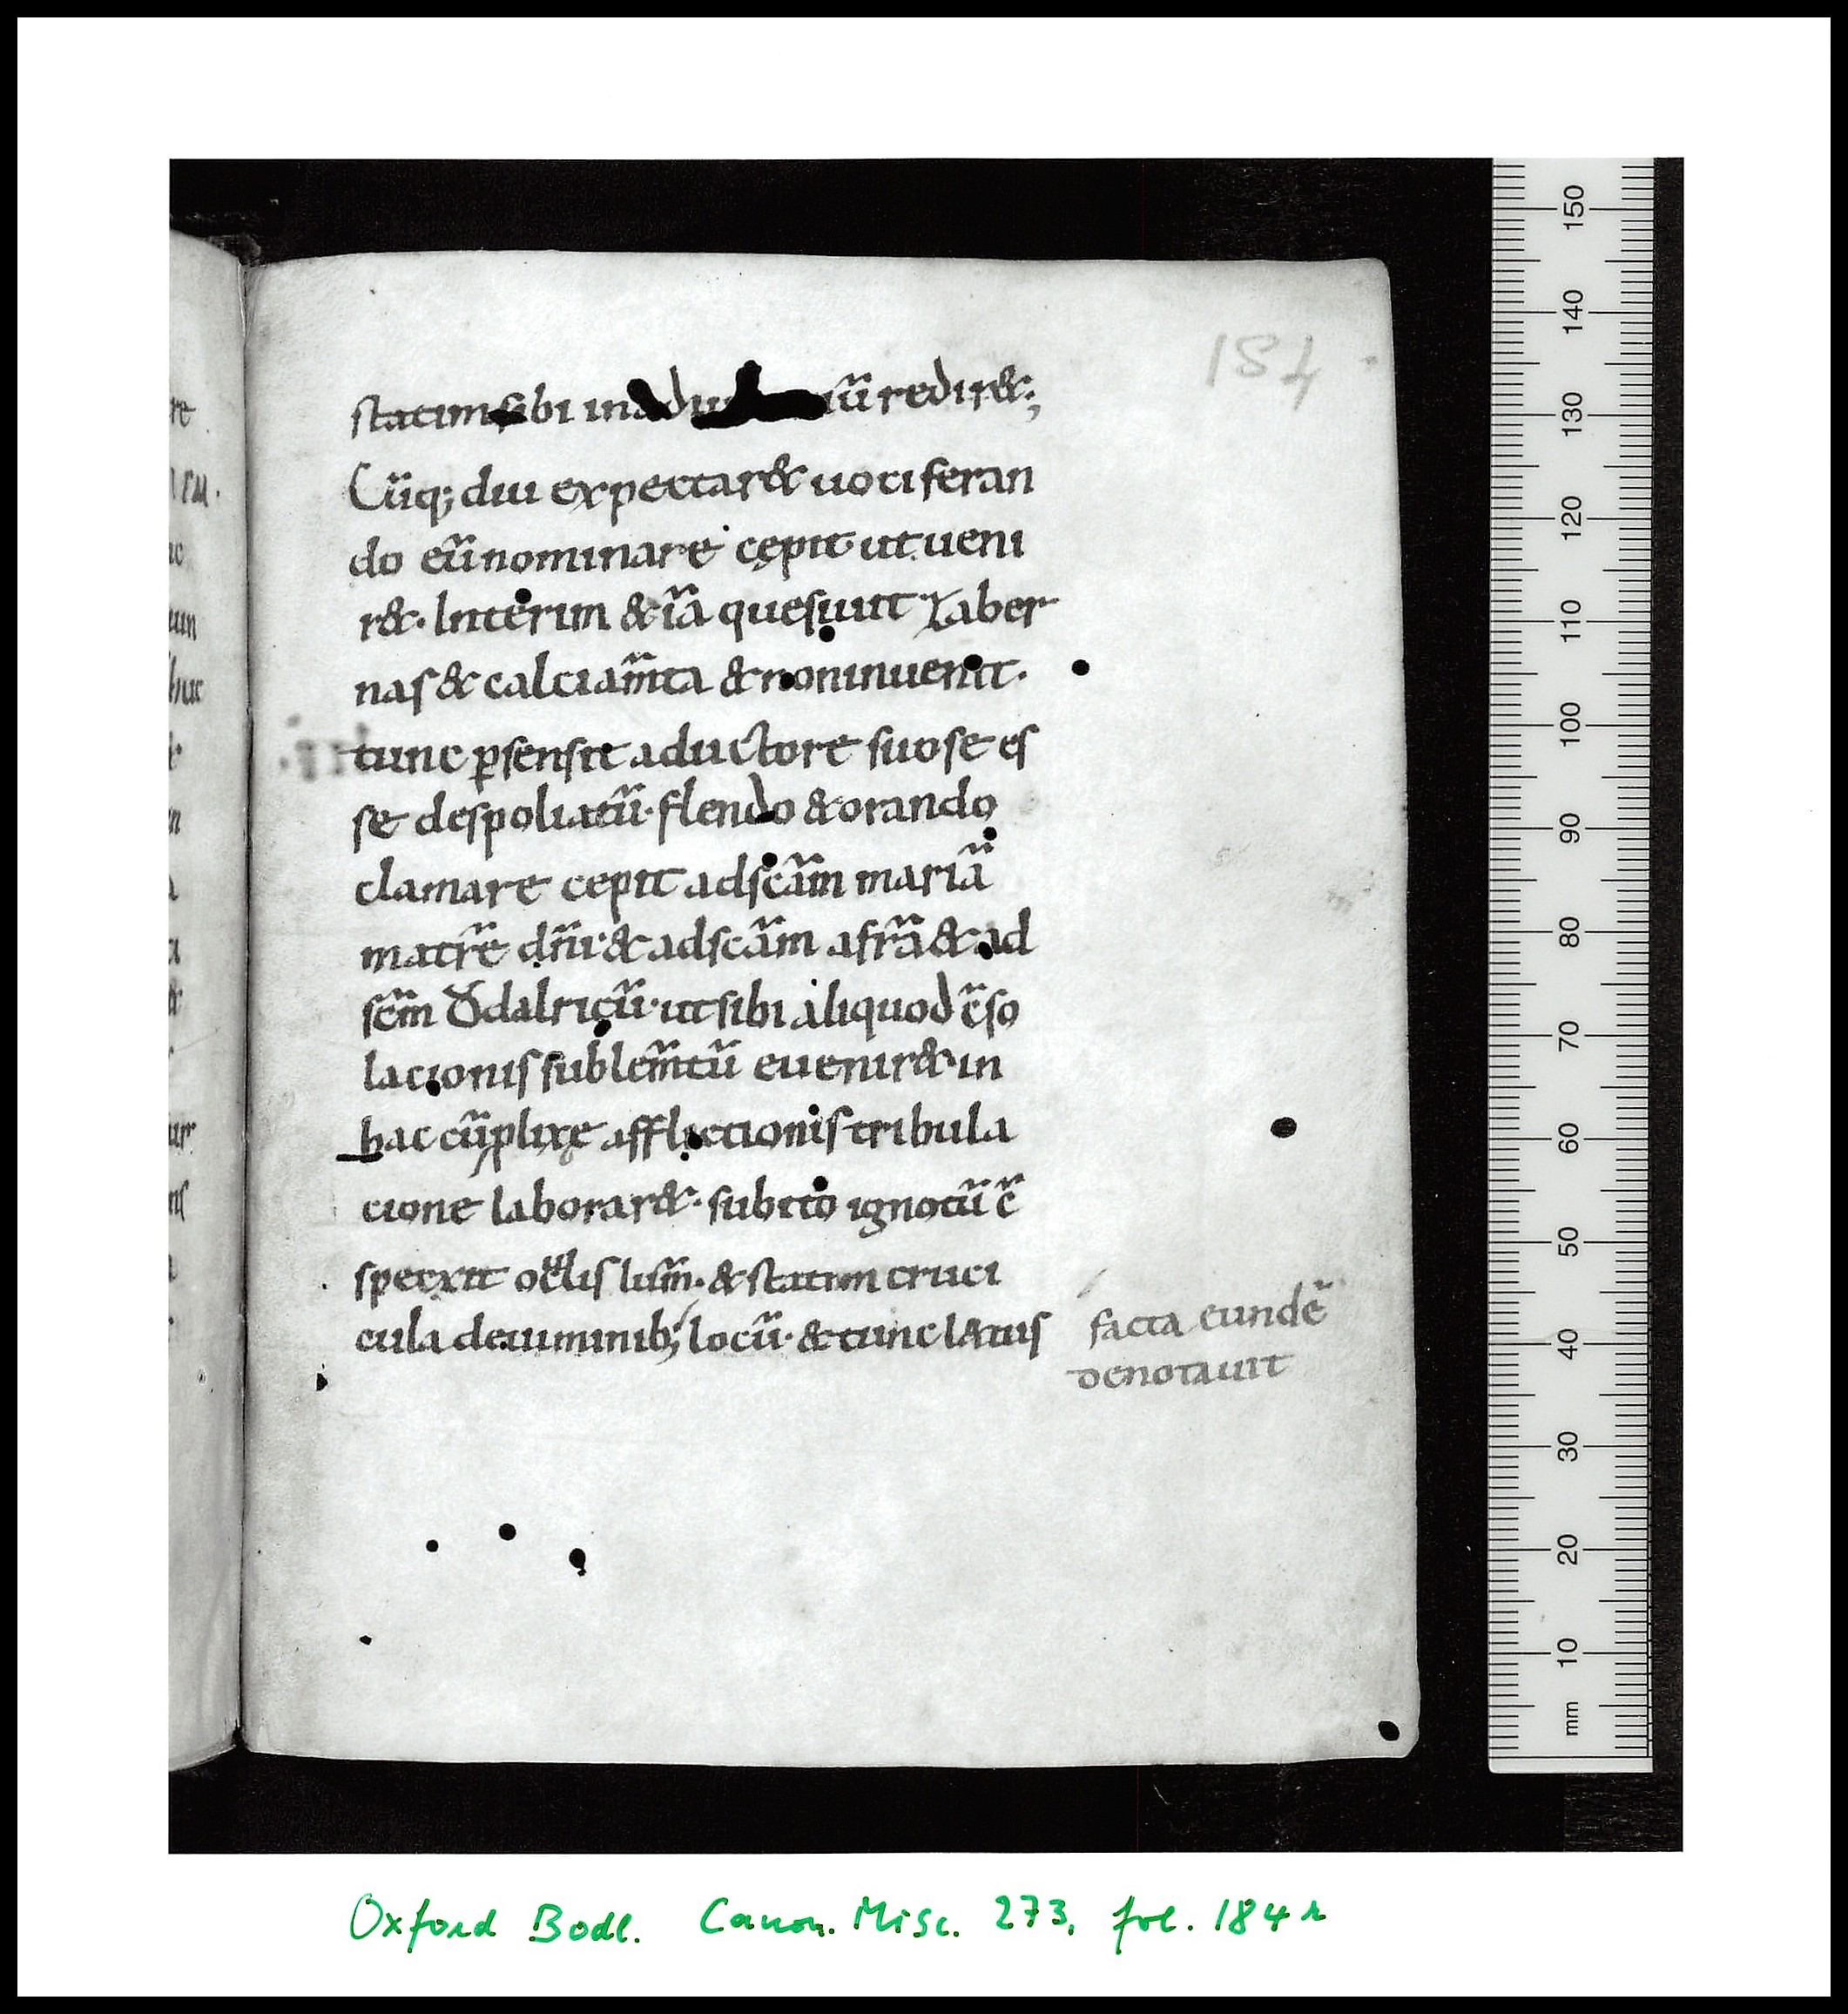 184
statim sibi in adiu iū redir&;
Cūq; diu expectar& uociferan
do eū nominare cępit ut ueni
r&. Interim & iā quesiuit taber
nas & calciam̄ta & non inuenit.
tunc ꝑsensit a ductore suo se es
se despoliatū. flendo & orando
clamare cepit ad scām mariā
matrē dn̄i & ad scām afrā & ad
scm̄ Ǒdalricū. ut sibi aliquod c̄so
lacionis sublem̄tū euenir& in
hac cū ꝓlixę afflictionis tribula
cione laborar&. subito ignotū c̄
spexit oc̄lis lum̄. & statim cruci
cula de uiminib; locū. & tunc l&tus
facta eundē
denotauit
Oxford Bodl. Canon. Misc. 273, fol. 184r
150
140
130
120
110
100
90
80
70
60
50
40
30
20
10
mm